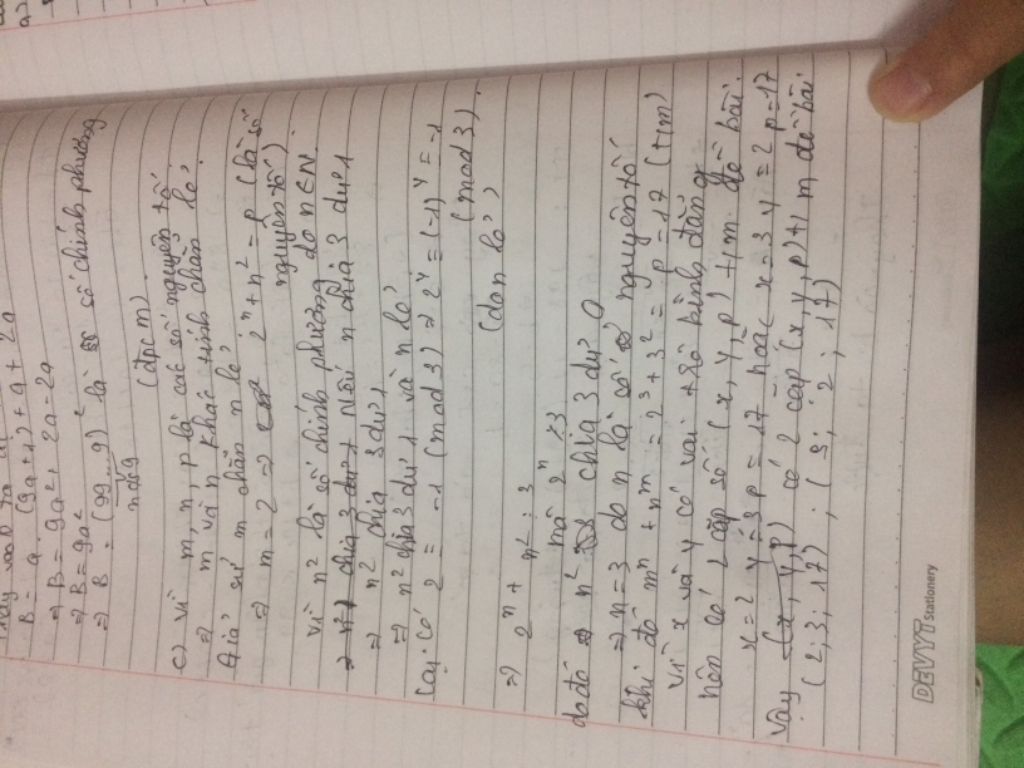 B = a. (9a + 1) + a + 2a
⇒ B = 9a² + 2a - 2a
⇒ B = 9a²
⇒ B = (99...9)² là số chính phương
n cs 9
(đpcm)
c) Vì m, n, p là các số nguyên tố
⇒ m và n khác tính chẵn lẻ.
Giả sử m chẵn n lẻ
⇒ m = 2 ⇒ 2ⁿ + n² = p (là số
nguyên tố)
Vì n² là số chính phương do n ∈ N.
chia 3 dư 1 Nếu n chia 3 dư 1
⇒ n² chia 3 dư 1
⇒ n² chia 3 dư 1 và n lẻ
Lại có 2 ≡ -1 (mod 3) ⇒ 2ⁿ ≡ (-1)ⁿ = -1
(mod 3).
(do n lẻ)
⇒ 2ⁿ + n² ⋮ 3
mà 2ⁿ ⋮̸ 3
do đó n² chia 3 dư 0
⇒ n = 3 do n là số nguyên tố
khi đó mⁿ + nᵐ = 2³ + 3² = p = 17 (t+m)
Vì x và y có vai trò bình đẳng
nên có 2 cặp số (x, y, p) t+m đề bài.
x = 2 y = 3 p = 17 hoặc x = 3 y = 2 p = 17
Vậy có 2 cặp (x, y, p) t+ m đề bài
(2; 3; 17) ; (3; 2; 17)
DEVYT stationery